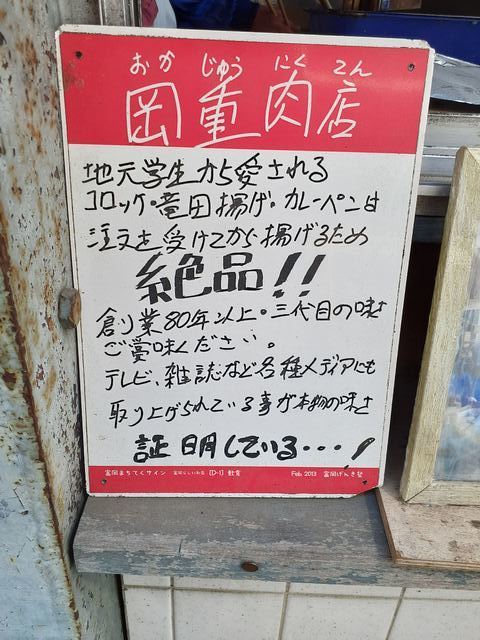 おか じゅう にく てん
岡重肉店
地元学生から愛される
コロッケ・竜田揚げ・カレーペンは
注文を受けてから揚げるため
絶品!!
創業80年以上・三代目の味を
ご賞味ください。
テレビ、雑誌など各種メディアにも
取り上げられている事が本物の味を
証明している・・・!
富岡まちてくサイン 富岡らしいお店 [D-1] 飲食 Feb. 2013 富岡げんき塾